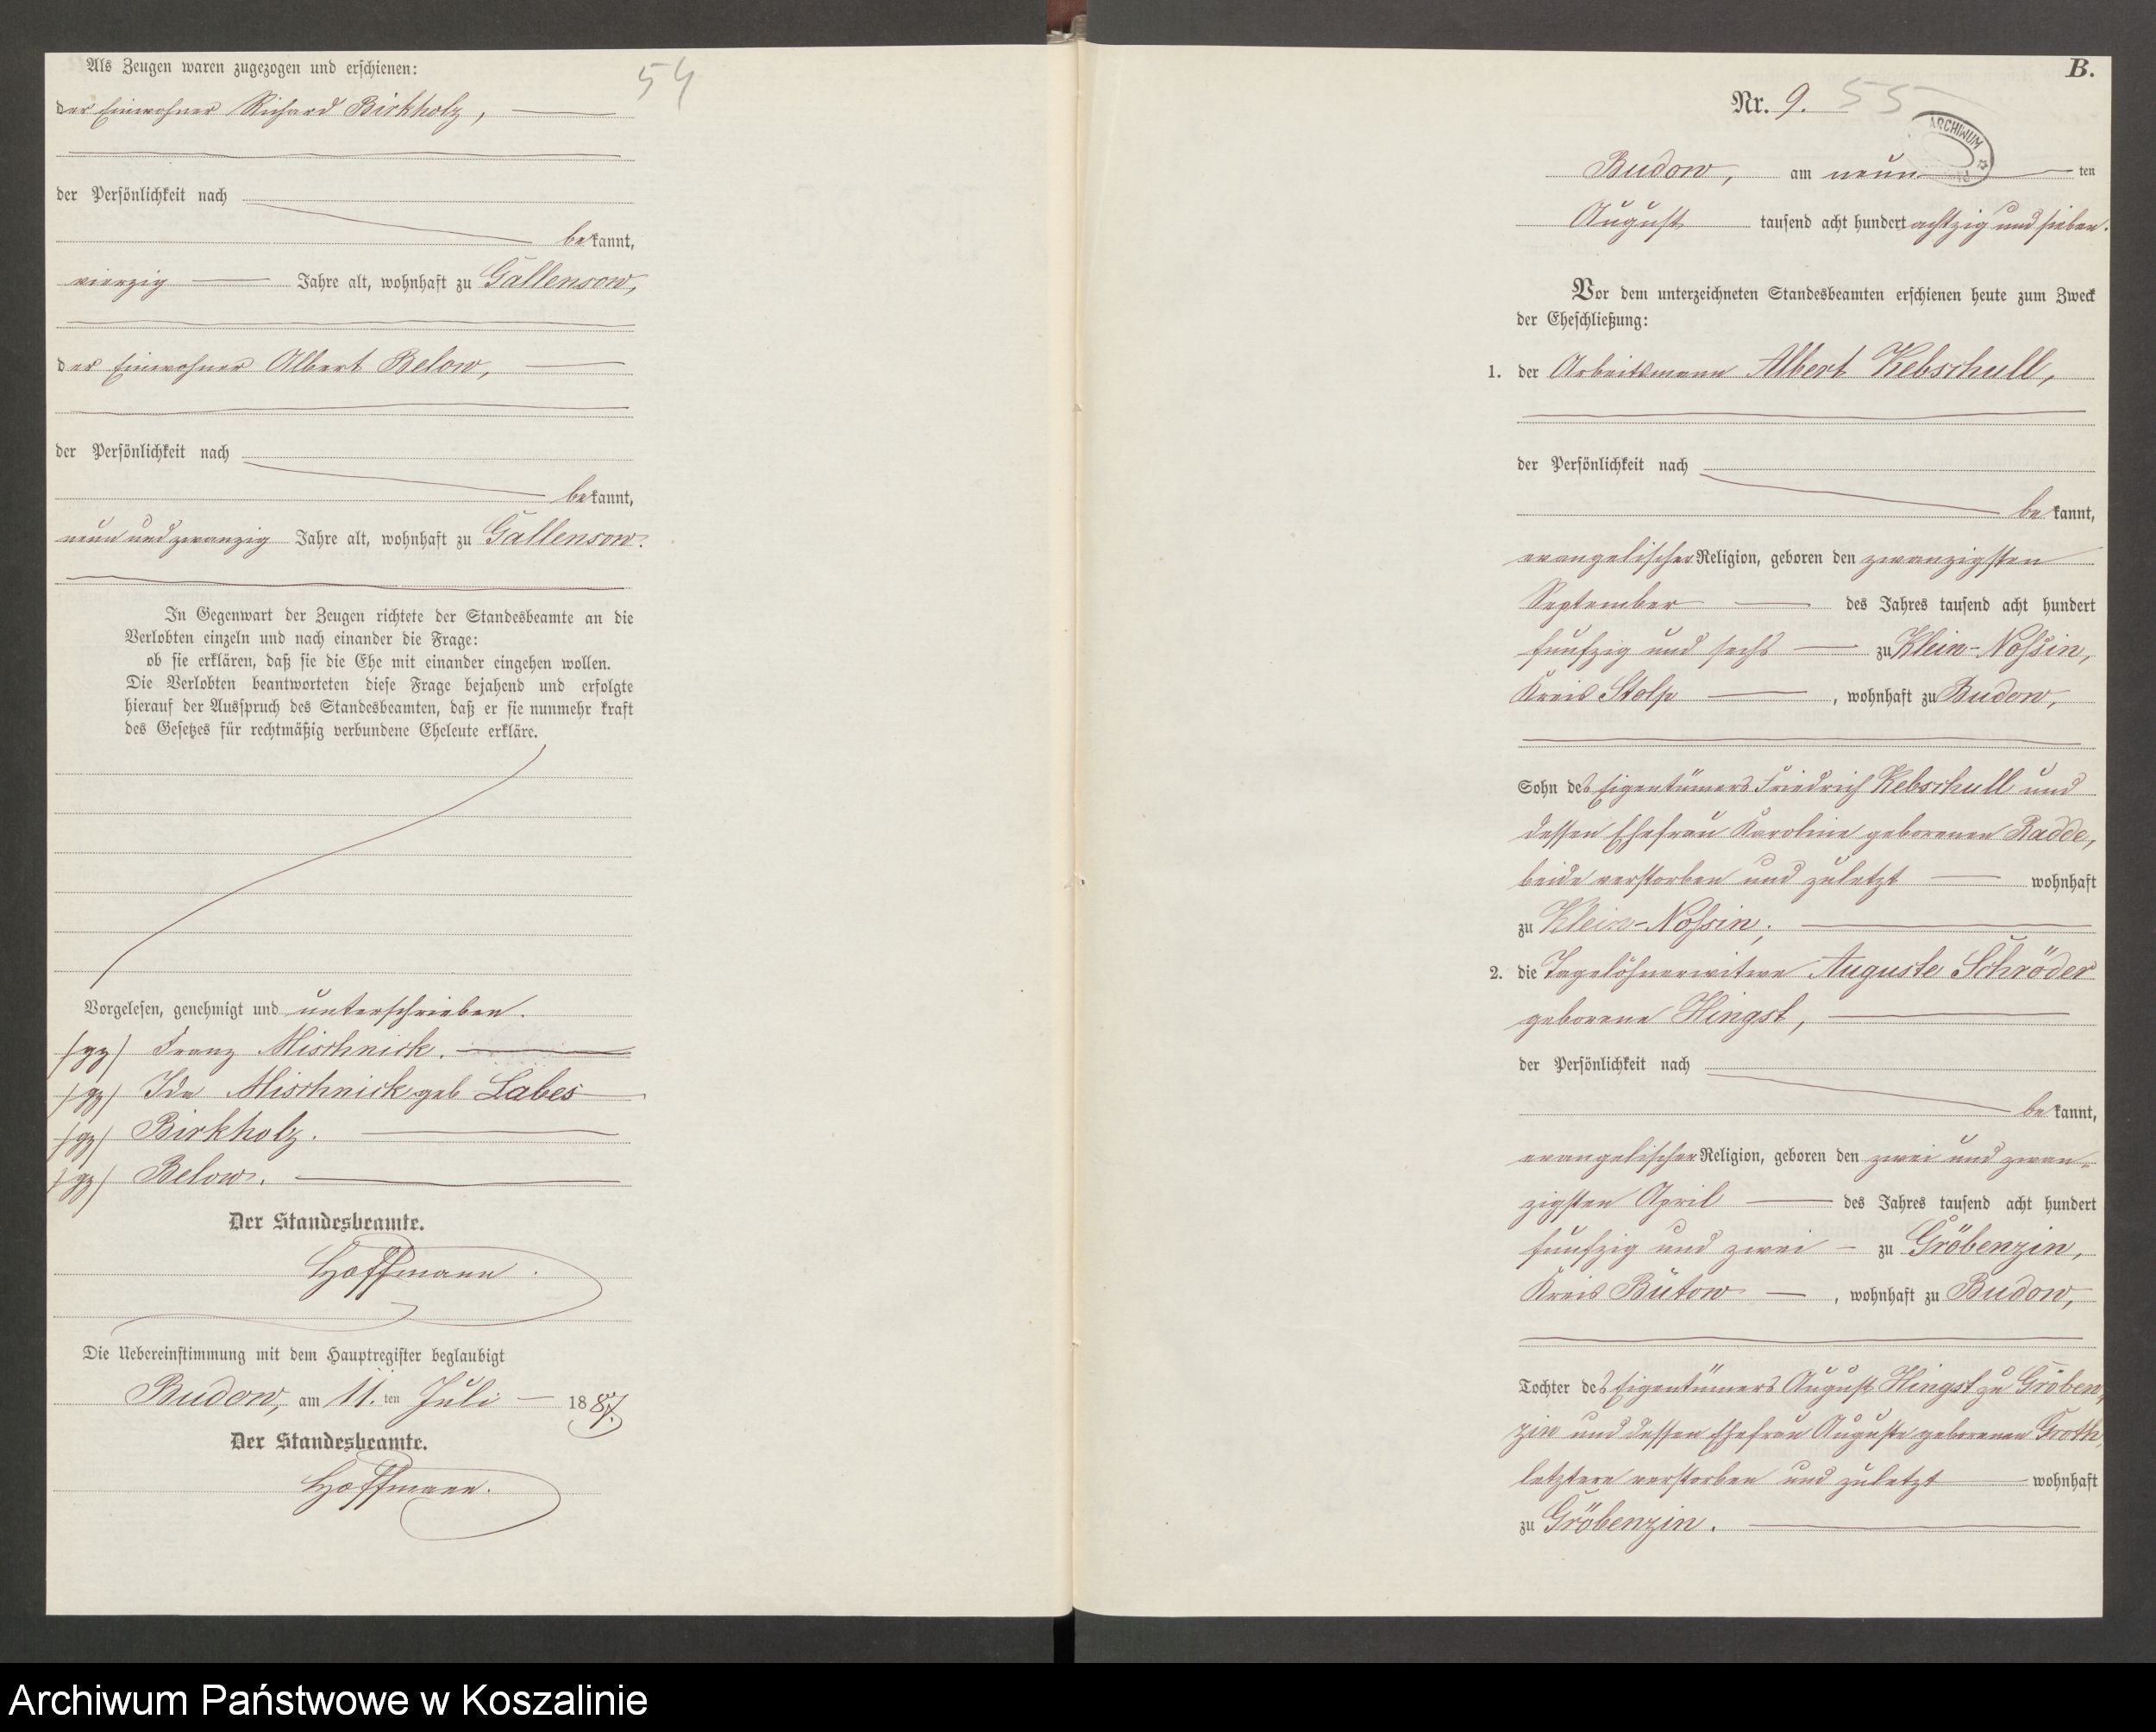 Als Zeugen waren zugezogen und erschienen:
54
der Einwohner Richard Birkholz,
der Persönlichkeit nach
bekannt,
vierzig Jahre alt, wohnhaft zu Gallensow,
der Einwohner Albert Below,
der Persönlichkeit nach
bekannt,
neun und zwanzig Jahre alt, wohnhaft zu Gallensow.
In Gegenwart der Zeugen richtete der Standesbeamte an die
Verlobten einzeln und nach einander die Frage:
ob sie erklären, daß sie die Ehe mit einander eingehen wollen.
Die Verlobten beantworteten diese Frage bejahend und erfolgte
hierauf der Ausspruch des Standesbeamten, daß er sie nunmehr kraft
des Gesetzes für rechtmäßig verbundene Eheleute erkläre.
Vorgelesen, genehmigt und unterschrieben.
(gz) Franz Mischnick.
(gz) Ida Mischnick geb Labes
(gz) Birkholz.
(gz) Below.
Der Standesbeamte.
Hoffmann.
Die Uebereinstimmung mit dem Hauptregister beglaubigt
Budow, am 11.ten Juli 1887.
Der Standesbeamte.
Hoffmann.
B.
Nr. 9. 55
ARCHIWUM
Budow, am neun ten
August tausend acht hundert achtzig und sieben.
Vor dem unterzeichneten Standesbeamten erschienen heute zum Zweck
der Eheschließung:
1. der Arbeitsmann Albert Kebschull,
der Persönlichkeit nach
bekannt,
evangelischer Religion, geboren den zwanzigsten
September des Jahres tausend acht hundert
fünfzig und sechs zu Klein-Nossin,
Kreis Stolp, wohnhaft zu Budow,
Sohn des Eigentümers Friedrich Kebschull und
dessen Ehefrau Karoline geborenen Radde,
beide verstorben und zuletzt wohnhaft
zu Klein-Nossin;
2. die Tagelöhnerwitwe Auguste Schröder
geborene Hingst,
der Persönlichkeit nach
bekannt,
evangelischer Religion, geboren den zwei und zwan-
zigsten April des Jahres tausend acht hundert
fünfzig und zwei zu Gröbenzin,
Kreis Bütow, wohnhaft zu Budow,
Tochter des Eigentümers August Hingst zu Gröben-
zin und dessen Ehefrau Auguste geborenen Groth,
letztere verstorben und zuletzt wohnhaft
zu Gröbenzin.
Archiwum Państwowe w Koszalinie